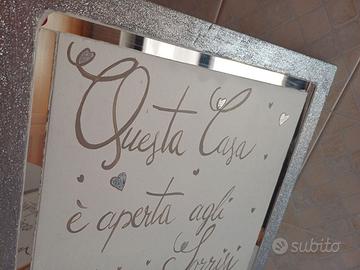 Questa Casa
è aperta agli
Sorrisi
subito